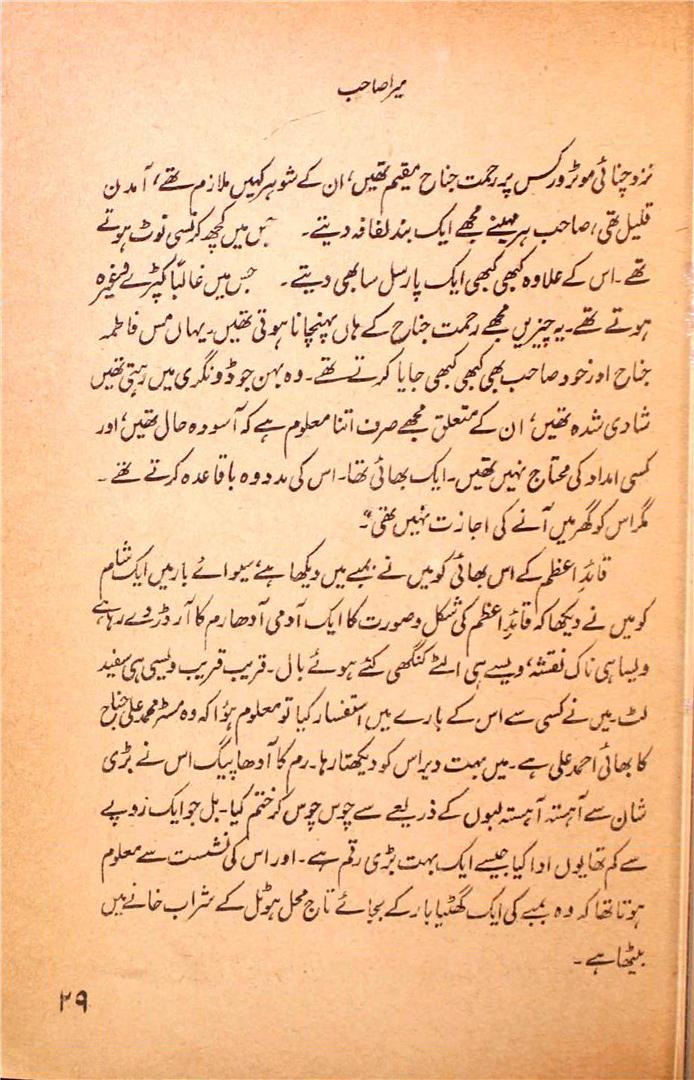 میرا صاحب
نزد چنائی موٹر ورکس پر رحمت جناح مقیم تھیں، ان کے شوہر کہیں ملازم تھے، آمدن
قلیل تھی، صاحب ہر مہینے مجھے ایک بند لفافہ دیتے۔ جس میں کچھ کرنسی نوٹ ہوتے
تھے۔ اس کے علاوہ کبھی کبھی ایک پارسل سا بھی دیتے۔ جس میں غالباً کپڑے وغیرہ
ہوتے تھے۔ یہ چیزیں مجھے رحمت جناح کے ہاں پہنچانا ہوتی تھیں۔ یہاں مس فاطمہ
جناح اور خود صاحب بھی کبھی کبھی جایا کرتے تھے۔ وہ بہن جو ڈونگری میں رہتی تھیں
شادی شدہ تھیں، ان کے متعلق مجھے صرف اتنا معلوم ہے کہ آسودہ حال تھیں، اور
کسی امداد کی محتاج نہیں تھیں۔ ایک بھائی تھا۔ اس کی مدد وہ باقاعدہ کرتے تھے۔
مگر اس کو گھر میں آنے کی اجازت نہیں تھی"۔
قائدِ اعظم کے اس بھائی کو میں نے بمبے میں دیکھا ہے، سیوائے بار میں ایک شام
کو میں نے دیکھا کہ قائدِ اعظم کی شکل و صورت کا ایک آدمی آدھا رم کا آرڈر دے رہا ہے
ویسا ہی ناک نقشہ، ویسے ہی الٹے کنگھی کئے ہوئے بال۔ قریب قریب ویسی ہی سفید
لٹ۔ میں نے کسی سے اس کے بارے میں استفسار کیا تو معلوم ہؤا کہ وہ مسٹر محمد علی جناح
کا بھائی احمد علی ہے۔ میں بہت دیر اس کو دیکھتا رہا۔ رم کا آدھا پیگ اس نے بڑی
شان سے آہستہ آہستہ لبوں کے ذریعے سے چوس چوس کر ختم کیا۔ بل جو ایک روپے
سے کم تھا یوں ادا کیا جیسے ایک بہت بڑی رقم ہے۔ اور اس کی نشست سے معلوم
ہوتا تھا کہ وہ بمبے کی ایک گھٹیا بار کے بجائے تاج محل ہوٹل کے شراب خانے میں
بیٹھا ہے۔
۲۹